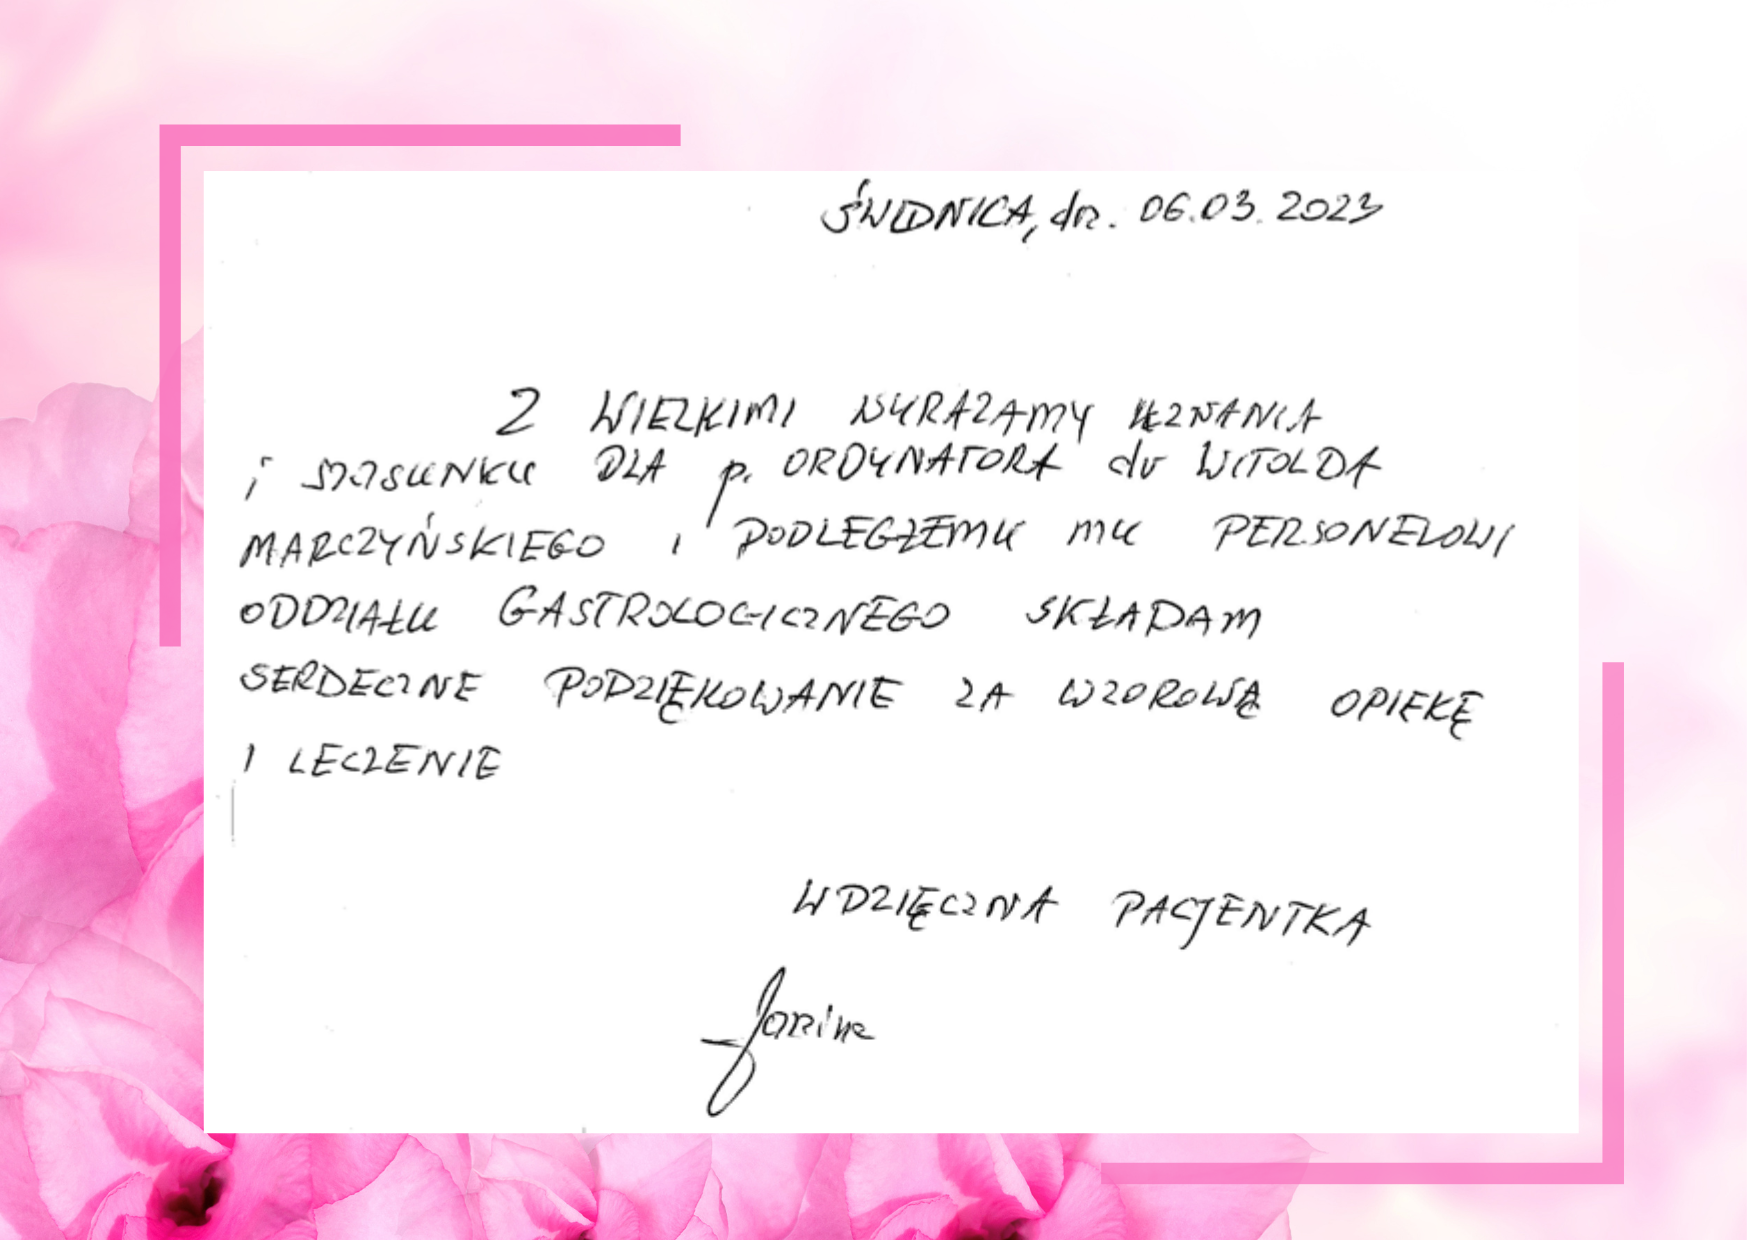 ŚWIDNICA, dn. 06.03.2023
Z WIELKIMI WYRAZAMY UZNANIA
i SZASUNKU DLA p. ORDYNATORA dr WITOLDA
MARCZYŃSKIEGO i PODLEGŁEMU MU PERSONELOWI
ODDZIAŁU GASTROLOGICZNEGO SKŁADAM
SERDECZNE PODZIĘKOWANIE ZA WZOROWĄ OPIEKĘ
I LECZENIE
WDZIĘCZNA PACJENTKA
Janina